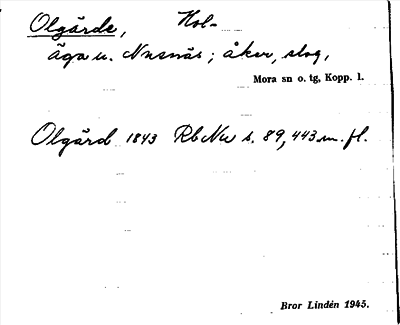 Olgärde, Hol-
äga u. Nusnäs; åker, slog,
Mora sn o. tg, Kopp. l.
Olgärd 1843 Rb Nu s. 89, 443 m. fl.
Bror Lindén 1945.